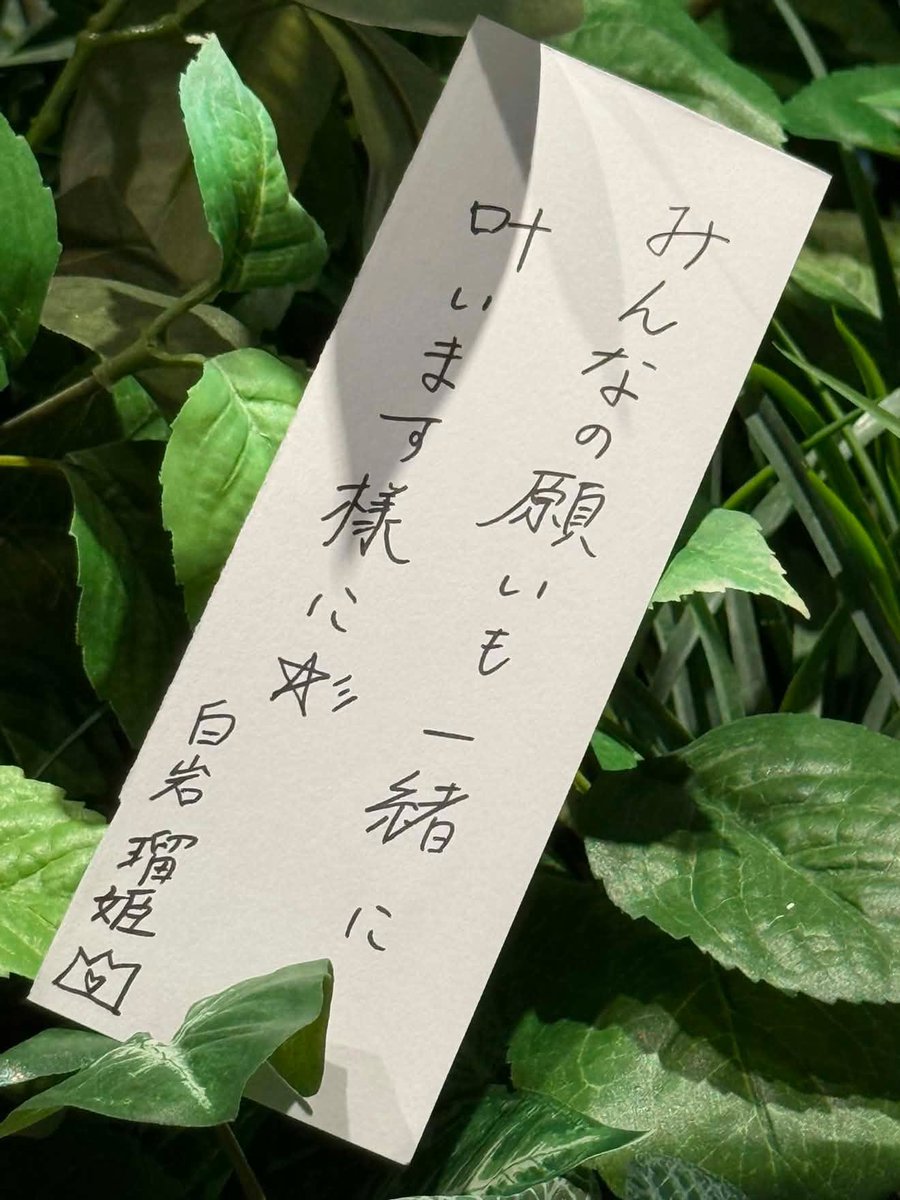 みんなの願いも一緒に
叶います様に☆彡
白岩瑠姫